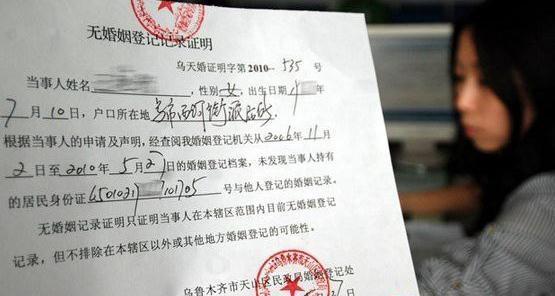 无婚姻登记记录证明
乌天婚证明字第2010--535 号
当事人姓名 ,性别 女 ,出生日期 年
7 月 10 日，户口所在地
根据当事人的申请及声明，经查阅我婚姻登记机关从 2006 年 11 月
2 日至 2010 年 5 月 27 日的婚姻登记档案，未发现当事人持有
的居民身份证 号与他人登记的婚姻记录。
无婚姻记录证明只证明当事人在本辖区范围内目前无婚姻登记
记录，但不排除在本辖区以外或其他地方婚姻登记的可能性。
乌鲁木齐市天山区民政局婚姻登记处
日